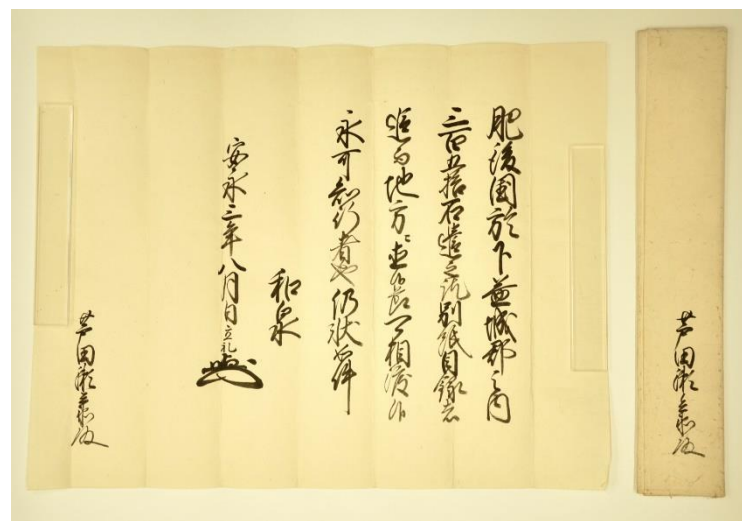 肥後国於下益城郡之内
三百五拾石遣之訖別紙目録者
追而地方ニ直候節可相渡候
永可知行者也仍状如件
和泉
安永三年八月日 立礼
芦田瀬兵衛殿
芦田瀬兵衛殿